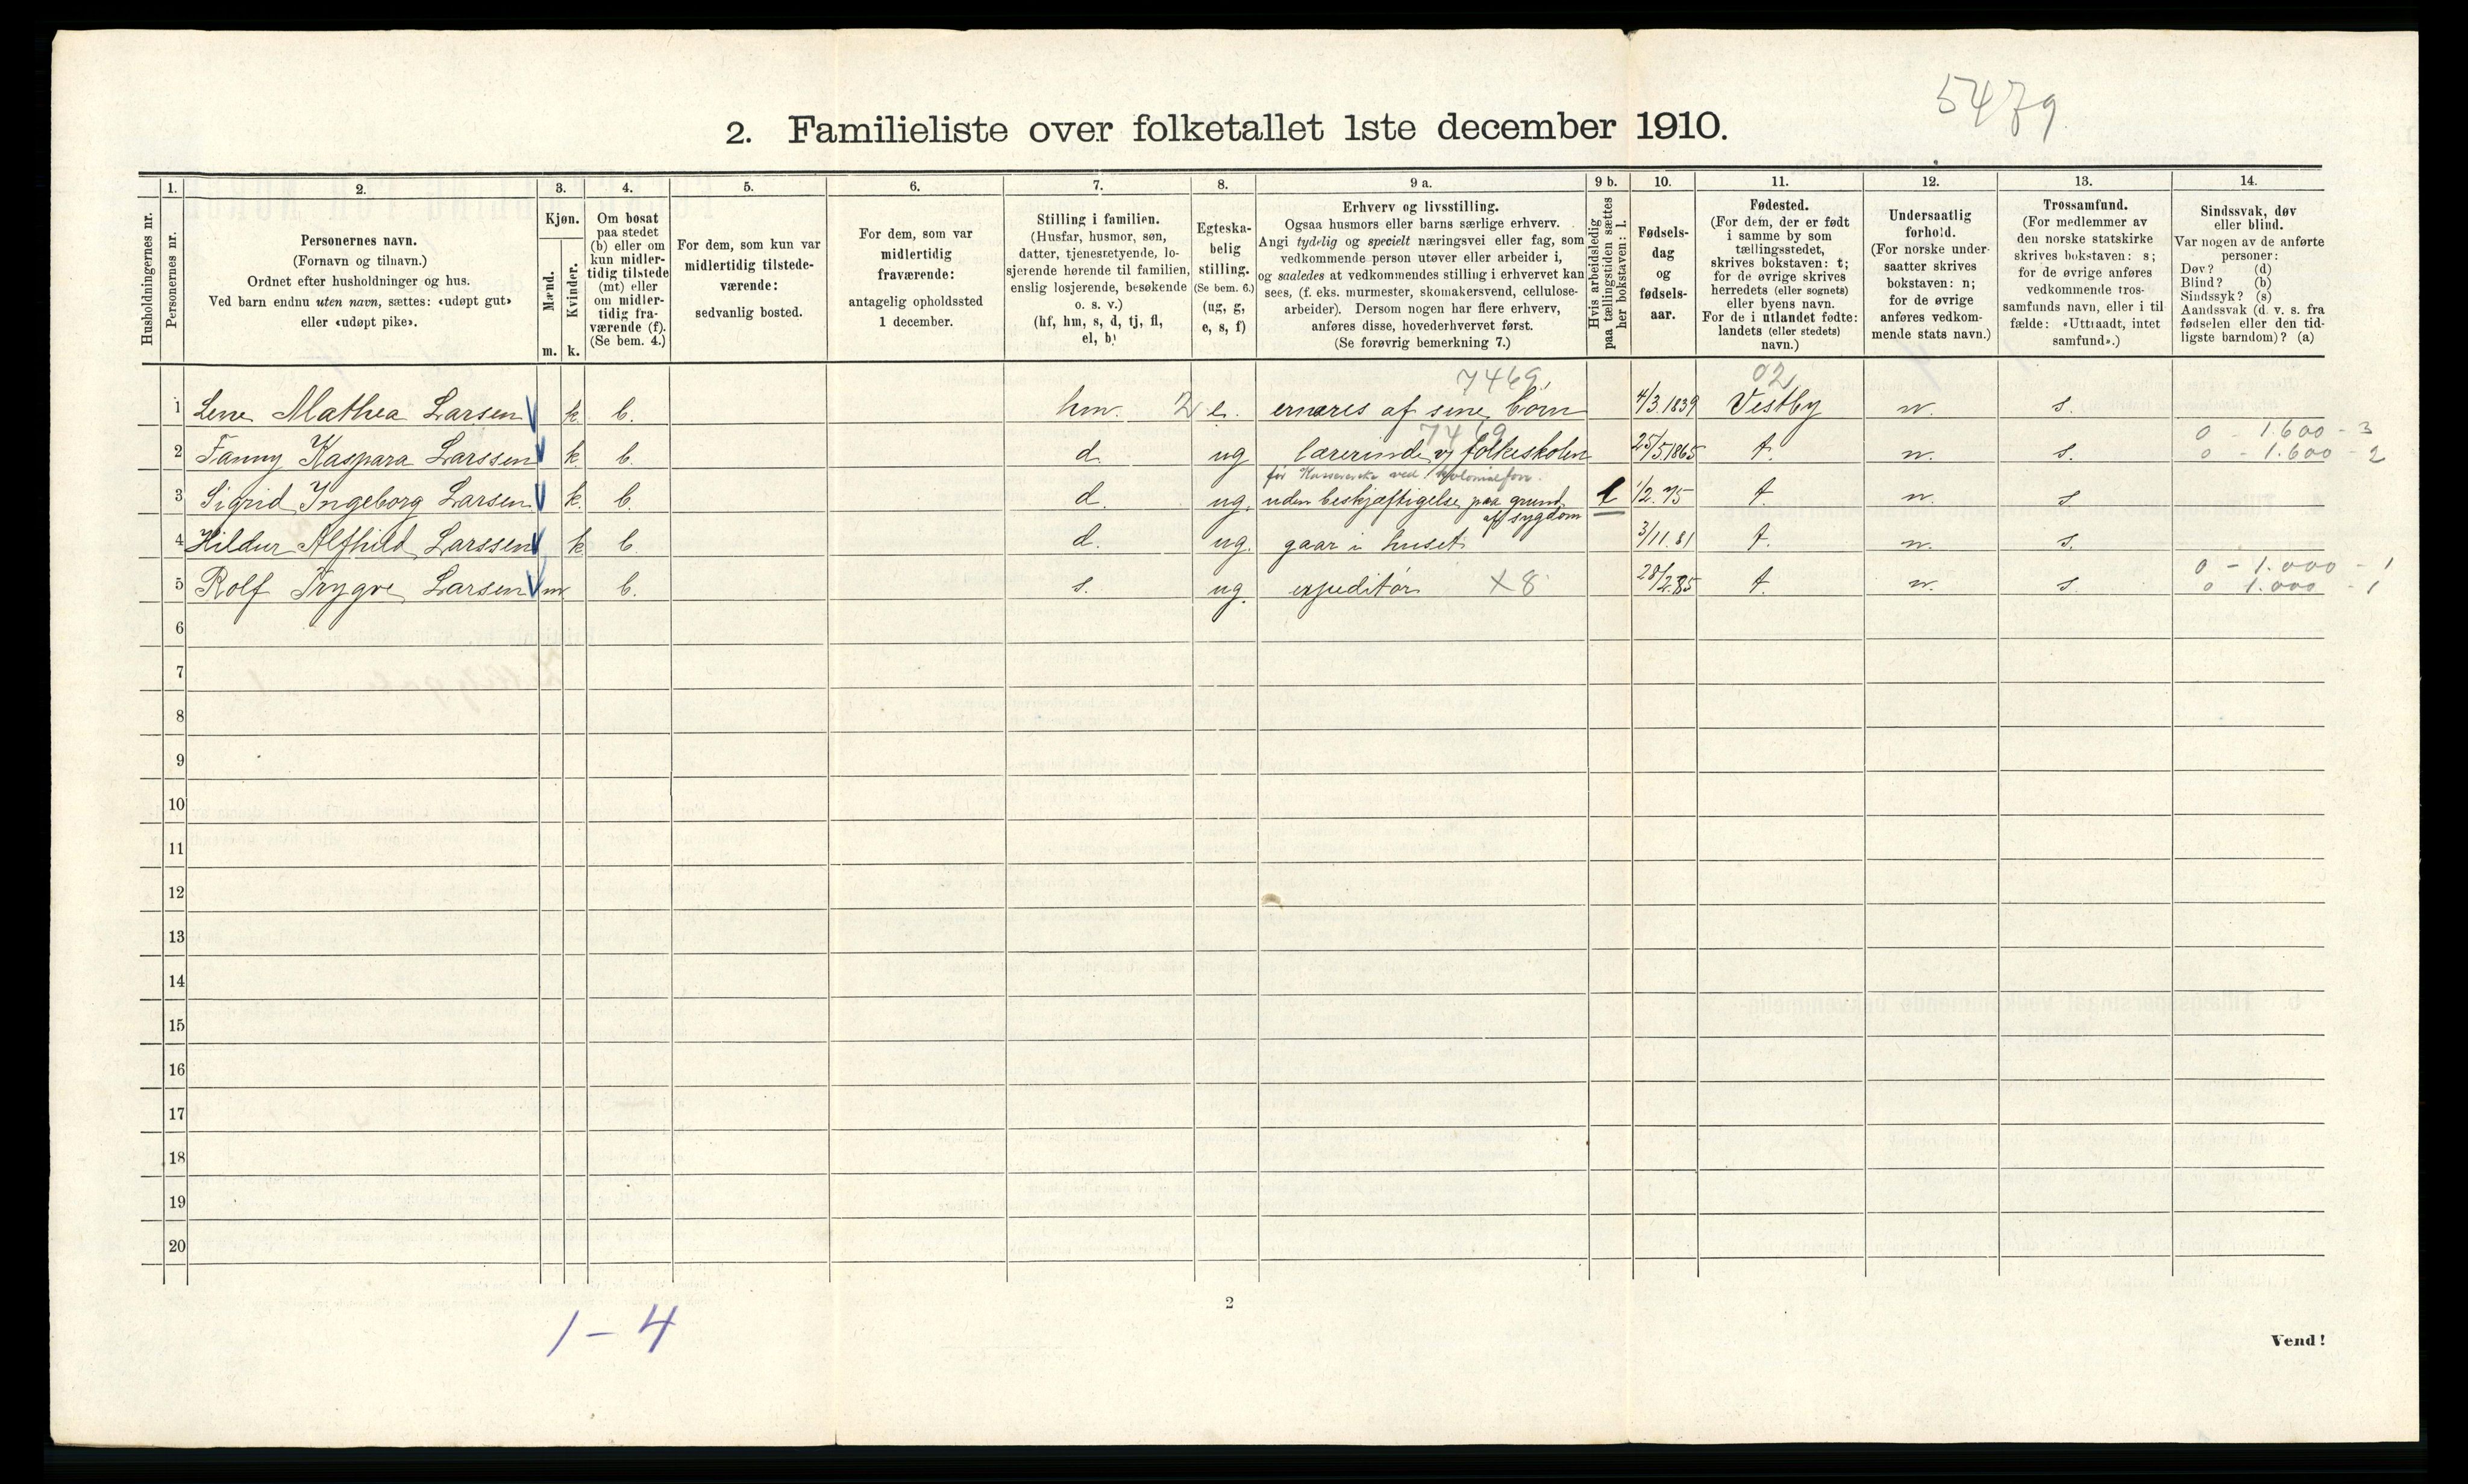 5479
2. Familieliste over folketallet 1ste december 1910.
Husholdningernes nr.
1.
Personernes nr.
2.
Personernes navn.
(Fornavn og tilnavn.)
Ordnet efter husholdninger og hus.
Ved barn endnu uten navn, sættes: «udøpt gut»
eller «udøpt pike».
3.
Kjøn.
Mænd.
Kvinder.
m. k.
4.
Om bosat
paa stedet
(b) eller om
kun midler-
tidig tilstede
(mt) eller
om midler-
tidig fra-
værende (f).
(Se bem. 4.)
5.
For dem, som kun var
midlertidig tilstede-
værende:
sedvanlig bosted.
6.
For dem, som var
midlertidig
fraværende:
antagelig opholdssted
1 december.
7.
Stilling i familien.
(Husfar, husmor, søn,
datter, tjenestetyende, lo-
sjerende hørende til familien,
enslig losjerende, besøkende
o. s. v.)
(hf, hm, s, d, tj, fl,
el, b)
8.
Egteska-
belig
stilling.
(Se bem. 6.)
(ug, g,
e, s, f)
9 a.
Erhverv og livsstilling.
Ogsaa husmors eller barns særlige erhverv.
Angi tydelig og specielt næringsvei eller fag, som
vedkommende person utøver eller arbeider i,
og saaledes at vedkommendes stilling i erhvervet kan
sees, (f. eks. murmester, skomakersvend, cellulose-
arbeider). Dersom nogen har flere erhverv,
anføres disse, hovederhvervet først.
(Se forøvrig bemerkning 7.)
9 b.
Hvis arbeidsledig
paa tællingstiden sættes
her bokstaven: l.
10.
Fødsels-
dag
og
fødsels-
aar.
11.
Fødested.
(For dem, der er født
i samme by som
tællingsstedet,
skrives bokstaven: t;
for de øvrige skrives
herredets (eller sognets)
eller byens navn.
For de i utlandet fødte:
landets (eller stedets)
navn.)
12.
Undersaatlig
forhold.
(For norske under-
saatter skrives
bokstaven: n;
for de øvrige
anføres vedkom-
mende stats navn.)
13.
Trossamfund.
(For medlemmer av
den norske statskirke
skrives bokstaven: s;
for de øvrige anføres
vedkommende tros-
samfunds navn, eller i til-
fælde: «Uttraadt, intet
samfund».)
14.
Sindssvak, døv
eller blind.
Var nogen av de anførte
personer:
Døv? (d)
Blind? (b)
Sindssyk? (s)
Aandssvak (d. v. s. fra
fødselen eller den tid-
ligste barndom)? (a)
7469 02
1 Lene Mathea Larsen k. b. hm. 2 e. ernæres af sine børn 4/3.1839 Vestby n. s.
7469 0 - 1.600 - 3
2 Fanny Kaspara Larssen k. b. d. ug lærerinde v/ folkeskolen 25/5 1865 t. n. s. 0 - 1.600 - 2
før ved
3 Sigrid Ingeborg Larsen k. b. d. ug. uden beskjæftigelse paa grund l 1/2. 75 t. n. s
af sygdom
4 Hildur Alfhild Larssen k b. d. ug. gaar i huset. 3/11.81 t. n. s.
0 - 1.000 - 1
5 Rolf Trygve Larsen m b. s. ug. expeditør X8 28/2.85 t. n. s. 0 1.000 - 1
6
7
8
9
10
11
12
13
14
15
16
17
18
19
20
1-4
2
Vend!